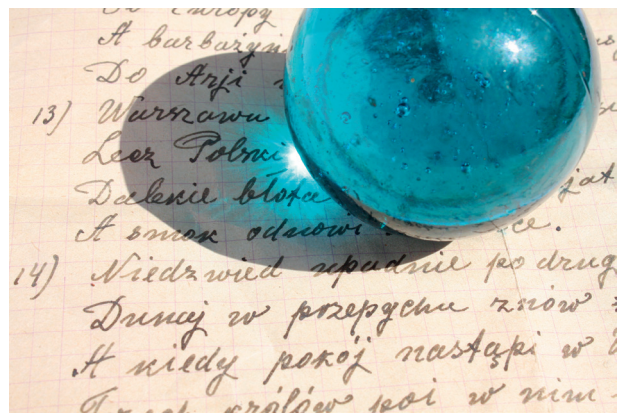 Do Europy
A barbarzyń
Do Azji
13) Warszawa
Lecz Polski
Dalekie błota jat
A smok odnowi ce.
14) Niedzwied upadnie po drug
Dunaj w przepychu znów
A kiedy pokój nastąpi w
Trzech królów poi w nim